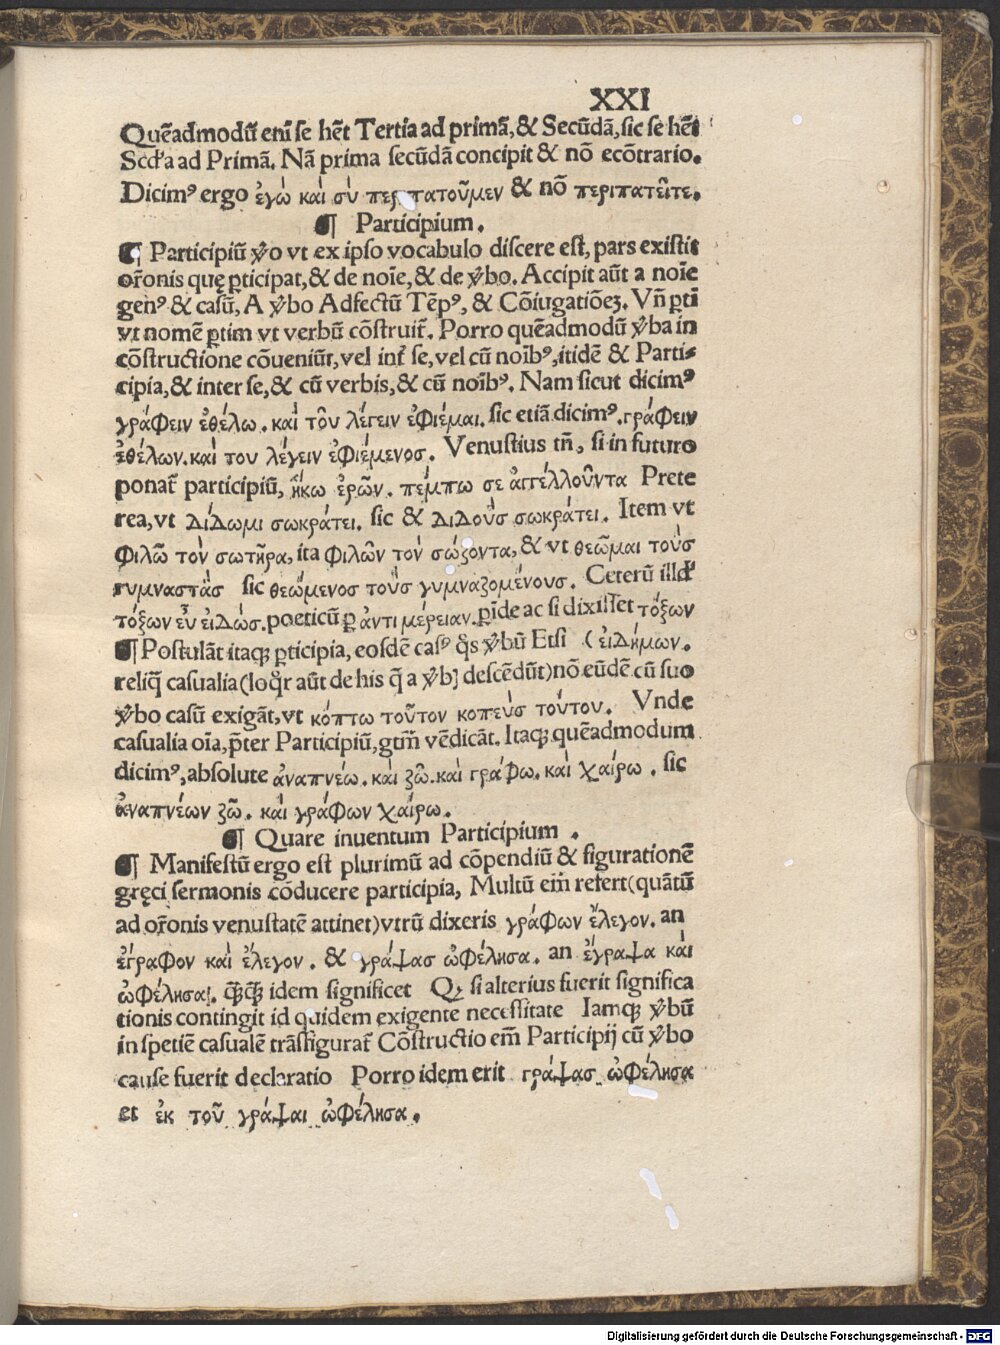 XXI
Quēadmodū eni se hēt Tertia ad primā, & Secūdā, sic se hēt
Scďa ad Primā. Nā prima secūdā concipit & nō ecōtrario.
Dicimꝰ ergo ἐγὼ καὶ σὺ περιπατοῦμεν & nō περιπατεῖτε.
¶ Participium.
¶ Participiū ꝟo vt ex ipso vocabulo discere est, pars existit
or̄onis quę ꝑticipat, & de noīe, & de ꝟbo. Accipit aūt a noīe
genꝰ & casū, A ꝟbo Adfectū Tēpꝰ, & Cōiugatiōeꝫ. Vn̄ ꝑti
vt nomē ꝑtim vt verbū cōstruit̄. Porro quēadmodū ꝟba in
cōstructione cōveniūt, vel int̄ se, vel cū noībꝰ, itidē & Parti-
cipia, & inter se, & cū verbis, & cū noībꝰ. Nam sicut dicimꝰ
γράφειν ἐθέλω. καὶ τοῦ λέγειν ἐφιέμαι. sic etiā dicimꝰ. γράφειν
ἐθέλων. καὶ του λέγειν ἐφιέμενοσ. Venustius tn̄, si in futuro
ponat̄ participiū, ἥκω ἐρῶν. πέμπω σε ἀγγέλλοῦντα Prete
rea, vt δίδωμι σωκράτει. sic & διδοὺσ σωκράτει. Item vt
φιλῶ τὸν σωτῆρα, ita φιλῶν τὸν σώζοντα, & vt θεῶμαι τοὺσ
γυμναστὰσ sic θεώμενοσ τοὺσ γυμναζομένουσ. Ceterū illď
τόξων εὖ εἰδώσ. poeticū ꝑ ἀντι μέρειαν. ꝑīde ac si dixisset τόξων
¶ Postulāt itaqꝫ ꝑticipia, eosdē casꝰ q̄s ꝟbū Etsi (εἰδήμων.
reliq̄ casualia (loq̄r aūt de his q̄ a ꝟb] descēdūt) nō eūdē cū suo
ꝟbo casū exigāt, vt κόπτω τοῦτον κοπεὺσ τούτου. Vnde
casualia oīa, p̄ter Participiū, gtm̄ vēdicāt. Itaqꝫ quēadmodum
dicimꝰ, absolute ἀναπνέω. καὶ ζῶ. καὶ γράφω. καὶ χαίρω. sic
ἀναπνέων ζῶ. καὶ γράφων χαίρω.
¶ Quare inuentum Participium .
¶ Manifestū ergo est plurimū ad cōpendiū & figurationē
gręci sermonis cōducere participia, Multū em̄ refert (quātū
ad or̄onis venustatē attinet) vtrū dixeris γράφων ἔλεγον. an
ἔγραφον καὶ ἔλεγον. & γράψασ ὠφέλησα. an ἔγραψα καὶ
ὠφέλησα. q̄ꝫq̄ꝫ idem significet Qꝫ si alterius fuerit significa
tionis contingit id quidem exigente necessitate Iamqꝫ ꝟbū
in spetiē casualē trāsfigurat̄ Cōstructio em̄ Participij cū ꝟbo
cause fuerit declaratio Porro idem erit γράψασ ὠφέλησα
et ἐκ τοῦ γράψαι ὠφέλησα.
Digitalisierung gefördert durch die Deutsche Forschungsgemeinschaft - DFG